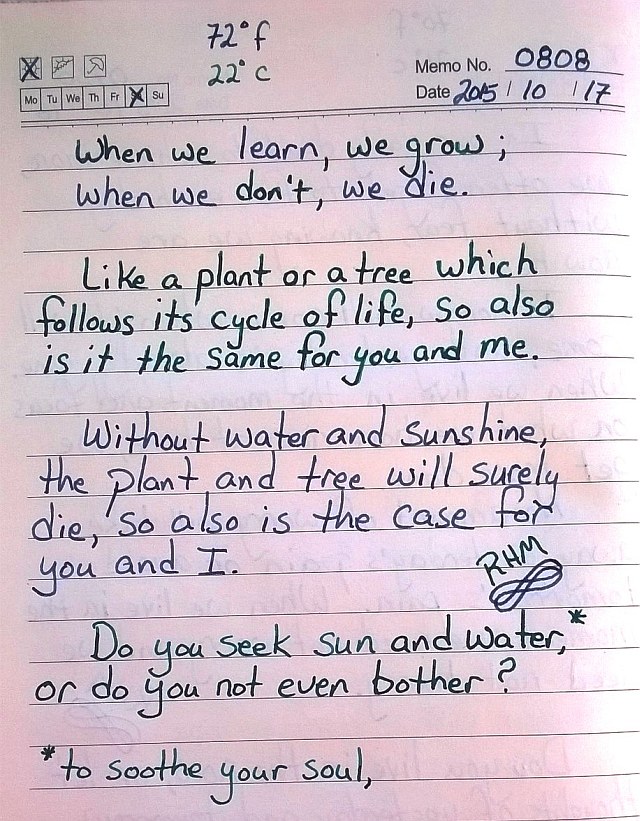 72° f
22° c
Memo No. 0808
Date 2015 / 10 / 17
Mo Tu We Th Fr Su
When we learn, we grow;
when we don't, we die.
Like a plant or a tree which
follows its cycle of life, so also
is it the same for you and me.
Without water and sunshine,
the plant and tree will surely
die, so also is the case for
you and I.
RHM
Do you seek sun and water,*
or do you not even bother?
*to soothe your soul,